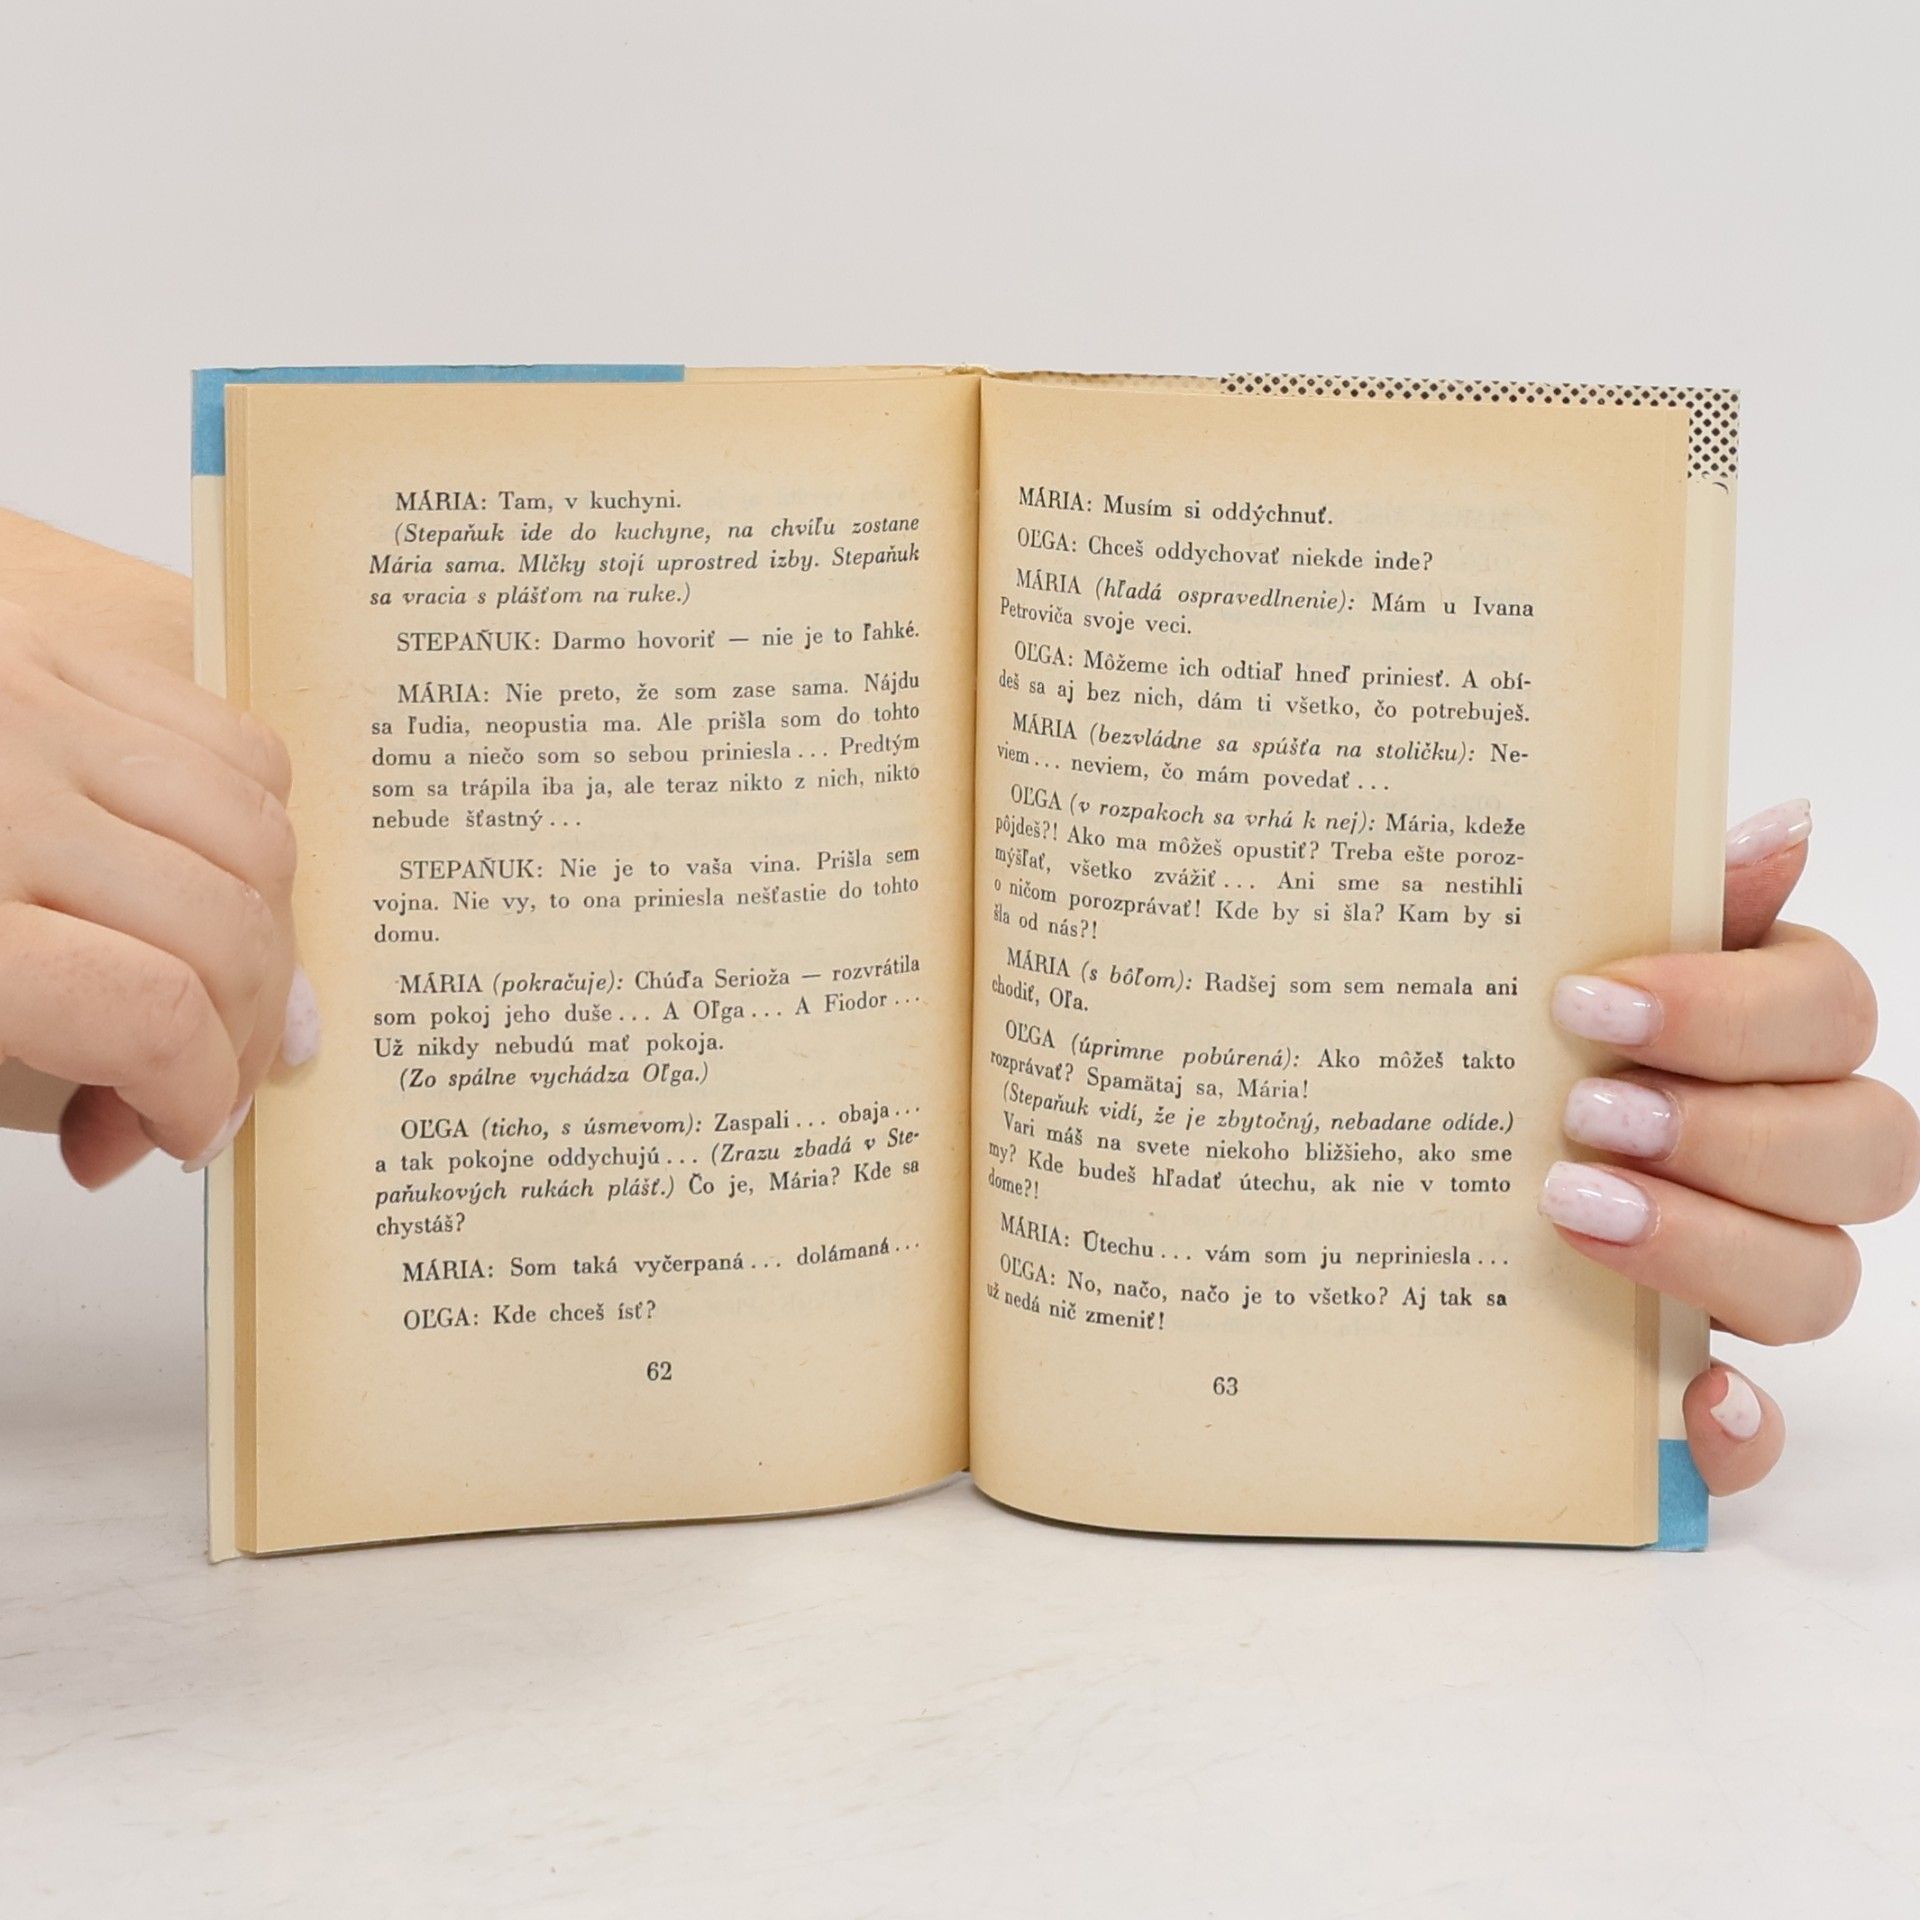 MÁRIA: Tam, v kuchyni.
(Stepaňuk ide do kuchyne, na chvíľu zostane
Mária sama. Mlčky stojí uprostred izby. Stepaňuk
sa vracia s plášťom na ruke.)
STEPAŇUK: Darmo hovoriť — nie je to ľahké.
MÁRIA: Nie preto, že som zase sama. Nájdu
sa ľudia, neopustia ma. Ale prišla som do tohto
domu a niečo som so sebou priniesla... Predtým
som sa trápila iba ja, ale teraz nikto z nich, nikto
nebude šťastný...
STEPAŇUK: Nie je to vaša vina. Prišla sem
vojna. Nie vy, to ona priniesla nešťastie do tohto
domu.
MÁRIA (pokračuje): Chúďa Serioža — rozvrátila
som pokoj jeho duše... A Oľga... A Fiodor...
Už nikdy nebudú mať pokoja.
(Zo spálne vychádza Oľga.)
OĽGA (ticho, s úsmevom): Zaspali... obaja...
a tak pokojne oddychujú... (Zrazu zbadá v Ste-
paňukových rukách plášť.) Čo je, Mária? Kde sa
chystáš?
MÁRIA: Som taká vyčerpaná... dolámaná...
OĽGA: Kde chceš ísť?
62
MÁRIA: Musím si oddýchnuť.
OĽGA: Chceš oddychovať niekde inde?
MÁRIA (hľadá ospravedlnenie): Mám u Ivana
Petroviča svoje veci.
OĽGA: Môžeme ich odtiaľ hneď priniesť. A obí-
deš sa aj bez nich, dám ti všetko, čo potrebuješ.
MÁRIA (bezvládne sa spúšťa na stoličku): Ne-
viem... neviem, čo mám povedať...
OĽGA (v rozpakoch sa vrhá k nej): Mária, kdeže
pôjdeš?! Ako ma môžeš opustiť? Treba ešte poroz-
mýšľať, všetko zvážiť... Ani sme sa nestihli
o ničom porozprávať! Kde by si šla? Kam by si
šla od nás?!
MÁRIA (s bôľom): Radšej som sem nemala ani
chodiť, Oľa.
OĽGA (úprimne pobúrená): Ako môžeš takto
rozprávať? Spamätaj sa, Mária!
(Stepaňuk vidí, že je zbytočný, nebadane odíde.)
Vari máš na svete niekoho bližšieho, ako sme
my? Kde budeš hľadať útechu, ak nie v tomto
dome?!
MÁRIA: Útechu... vám som ju nepriniesla...
OĽGA: No, načo, načo je to všetko? Aj tak sa
už nedá nič zmeniť!
63